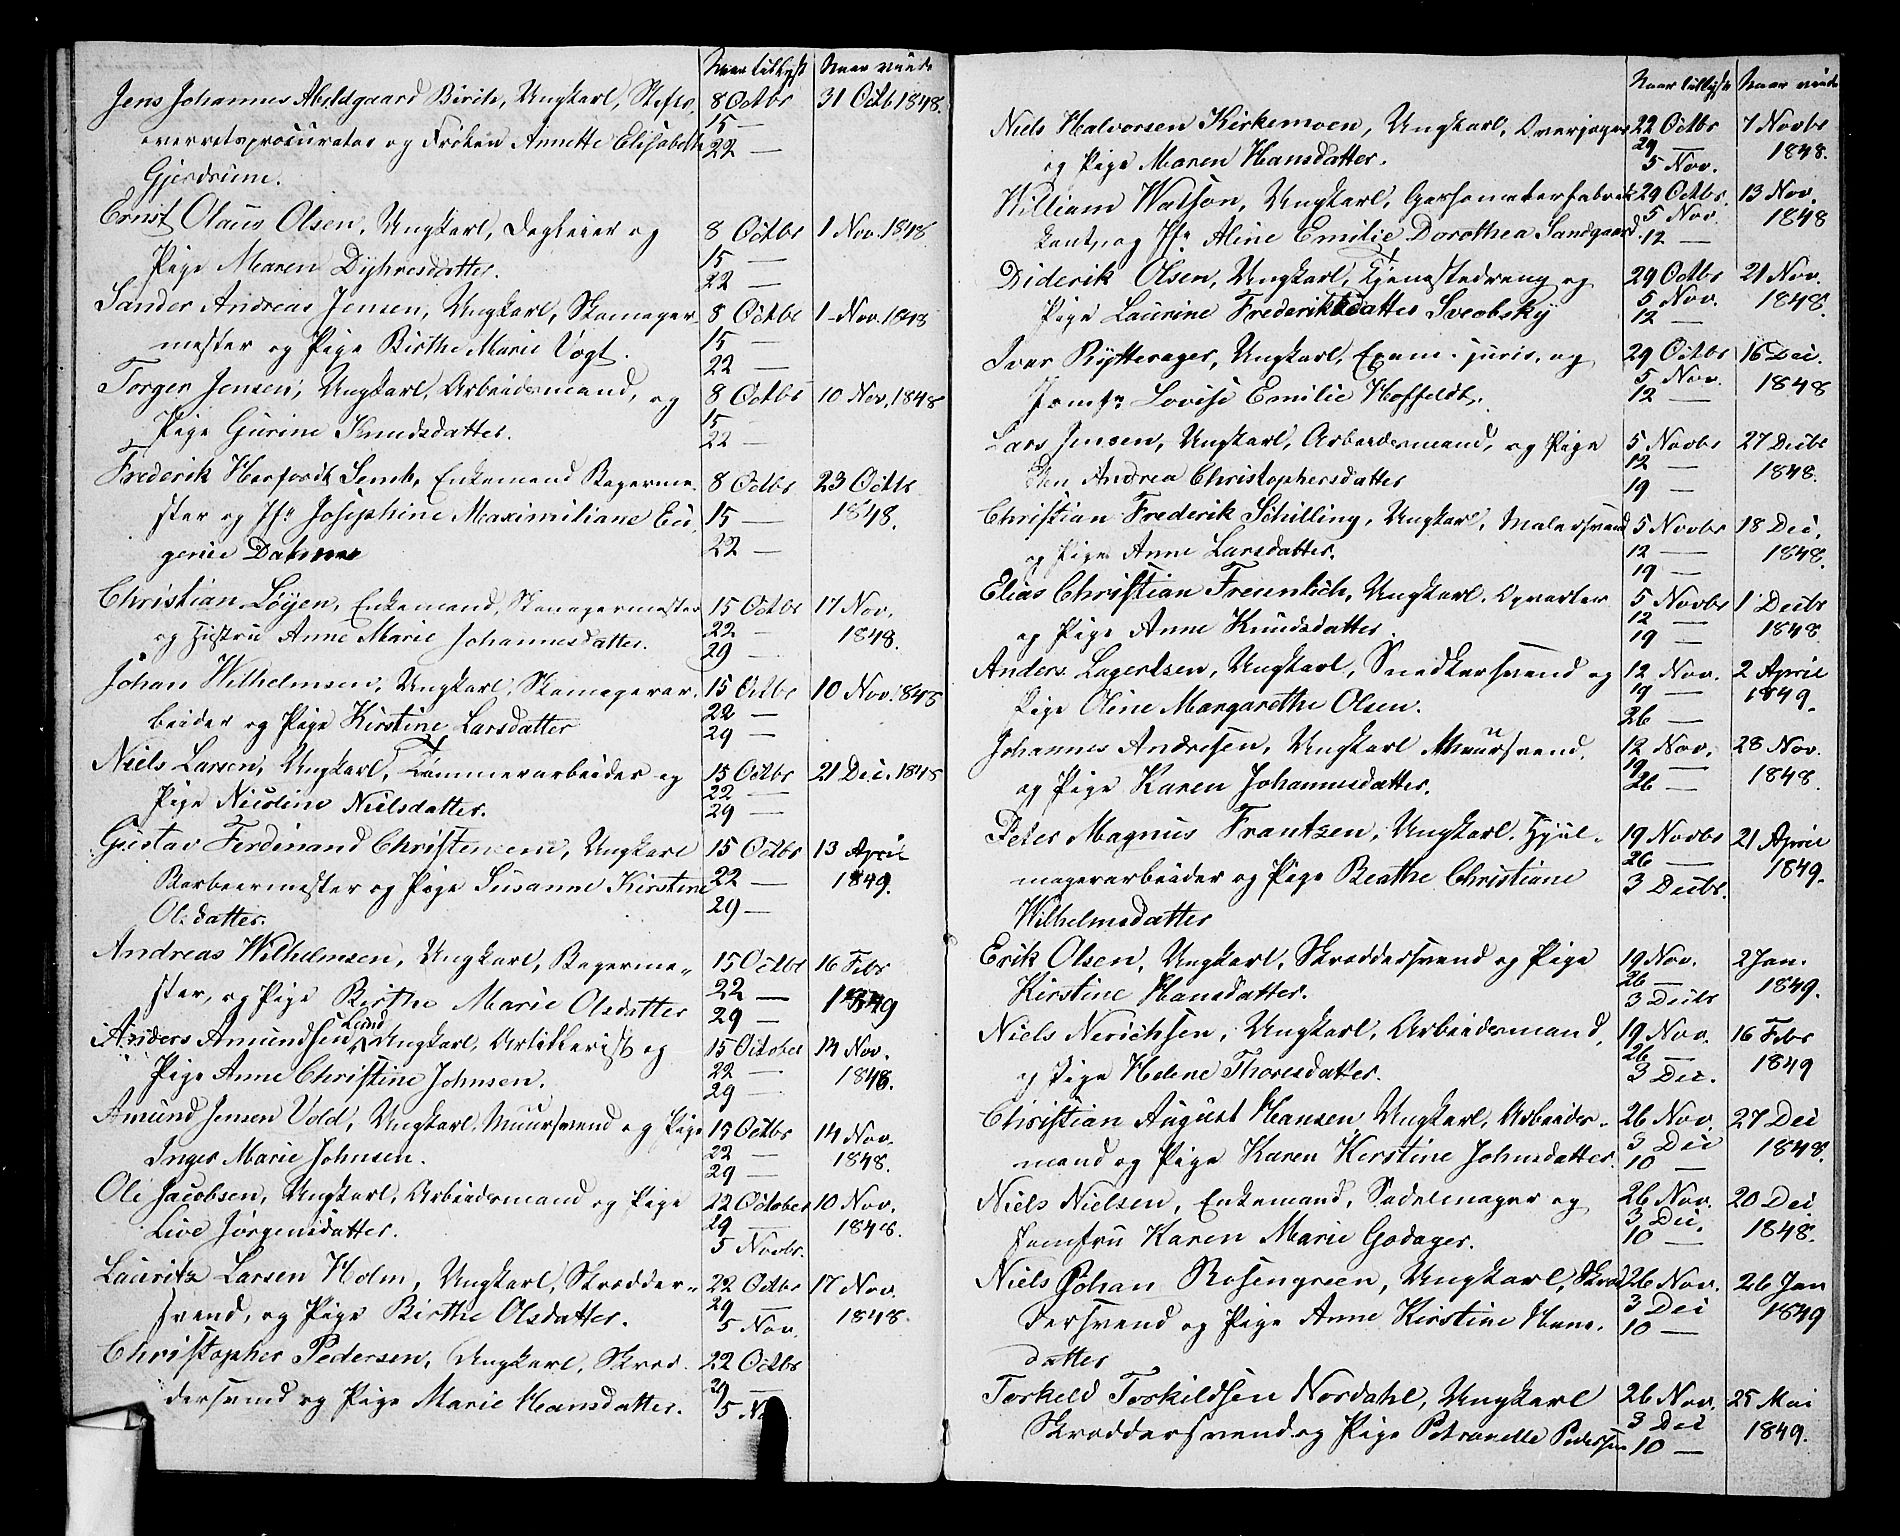 Naar tillyst Naar viede
Jens Johannes Abeldgaard Birch, Ungkarl, Stifts, 8 Octbr 31 Octb 1848.
overretsprocurator og Frøken Annette Elisabeth 15 —
Gjerdrum. 22 —
Ernst Olaus Olsen, Ungkarl, Dagleier og 8 Octbr 1 Nov. 1848
Pige Maren Dyhresdatter. 15 —
22 —
Sander Andreas Jensen, Ungkarl, Skomager- 8 Octbr 1 Nov. 1848
mester og Pige Birthe Marie Vogt. 15 —
22 —
Torger Jensen, Ungkarl, Arbeidsmand, og 8 Octbr 10 Nov. 1848
Pige Gurine Knudsdatter. 15 —
22 —
Frederik Herfordt Senk, Enkemand Bagerme- 8 Octbr 23 Octbr
ster og Jfr Josephine Maximiliane Eu- 15 — 1848.
genie 22 —
Christian Løyen, Enkemand, Skomagermester 15 Octbr 17 Nov.
og Hustru Anne Marie Johannesdatter. 22 — 1848.
29 —
Johan Wilhelmsen, Ungkarl, Skomagerar- 15 Octbr 10 Nov. 1848
beider og Pige Kirstine Larsdatter 22 —
29 —
Niels Larsen, Ungkarl, Tømmerarbeider og 15 Octbr 21 Dec. 1848
Pige Nicoline Nielsdatter. 22 —
29 —
Gustav Ferdinand Christensen, Ungkarl 15 Octbr 13 April
Barbeermester og Pige Susanne Kirstine 22 — 1849.
Olsdatter. 29 —
Andreas Wilhelmsen, Ungkarl, Bagerme- 15 Octbr 16 Febr
ster, og Pige Birthe Marie Olsdatter 22 — 1849
29 —
Anders Amundsen Lund, Ungkarl, Artillerist og 15 October 14 Nov.
Pige Anne Christine Johnsen. 22 — 1848.
29 —
Amund Jensen Vold, Ungkarl, Muursvend og Pige 15 Octbr 14 Nov.
Inger Marie Johnsen. 22 — 1848.
29 —
Ole Jacobsen, Ungkarl, Arbeidsmand og Pige 22 October 10 Nov.
Live Jörgensdatter. 29 — 1848.
5 Novbr.
Lauritz Larsen Holm, Ungkarl, Skrædder- 22 Octbr 17 Nov.
svend, og Pige Birthe Olsdatter. 29 — 1848.
5 Nov.
Christopher Pedersen, Ungkarl, Skræd- 22 Octbr
dersvend og Pige Marie Hansdatter. 29 —
5 N
Naar tillyste Naar viede
Niels Halvorsen Kirkemoen, Ungkarl, Overjæger 22 Octbr 7 Novbr
og Pige Maren Hansdatter. 29 — 1848.
5 Nov.
William Watson, Ungkarl, Gasometerfabri- 29 Octbr. 13 Nov.
kant, og Jfr Aline Emilie Dorothea Sandgaard. 5 Nov. 1848
12 —
Diderik Olsen, Ungkarl, Tjenestedreng og 29 Octbr 21 Nov.
Pige Laurine Frederiksdatter Sveobsky 5 Nov. 1848.
12 —
Iver Rytterager, Ungkarl, Exam. juris, og 29 Octbr 16 Dec.
Jomfr Lovise Emilie Hoffeldt. 5 Nov. 1848
12 —
Lars Jensen, Ungkarl, Arbeidsmand, og Pige 5 Novbr 27 Decbr
Andrea Christophersdatter 12 — 1848.
19 —
Christian Frederik Schilling, Ungkarl, Malersvend 5 Novbr 18 Dec.
og Pige Anne Larsdatter. 12 — 1848.
19 —
Elias Christian Freunlich, Ungkarl, Opvarter 5 Novbr 1 Decbr
og Pige Anne Knudsdatter. 12 — 1848.
19 —
Anders Lagertsen, Ungkarl, Snedkersvend og 12 Nov. 2 April
Pige Oline Margarethe Olsen. 19 — 1849.
26 —
Johannes Andresen, Ungkarl Muursvend, 12 Nov. 28 Nov.
og Pige Karen Johannesdatter. 19 — 1848.
26 —
Peter Magnus Frantzen, Ungkarl, Hjul- 19 Novbr 21 April
magerarbeider og Pige Beathe Christiane 26 — 1849.
Wilhelmsdatter 3 Decbr.
Erik Olsen, Ungkarl, Skræddersvend og Pige 19 Nov. 2 Jan.
Kirstine Hansdatter. 26 — 1849.
3 Decbr
Niels Nerichsen, Ungkarl, Arbeidsmand, 19 Nov. 16 Febr
og Pige Helene Thoresdatter. 26 — 1849
3 Dec.
Christian August Hansen, Ungkarl, Arbeids- 26 Nov. 27 Dec
mand og Pige Karen Kirstine Johnsdatter. 3 Dec 1848.
10 —
Niels Nielsen, Enkemand, Sadelmager og 26 Nov. 20 Dec
Jomfru Karen Marie Godager. 3 Dec. 1848.
10 —
Niels Johan Rosengreen, Ungkarl, Skræd 26 Nov. 26 Jan
dersvend og Pige Anne Kirstine Hans- 3 Dec 1849
datter 10 —
Torkeld Torkildsen Nordahl, Ungkarl 26 Nov. 25 Mai
Skræddersvend og Pige Petronelle Pedersen 3 Dec 1849.
10 —